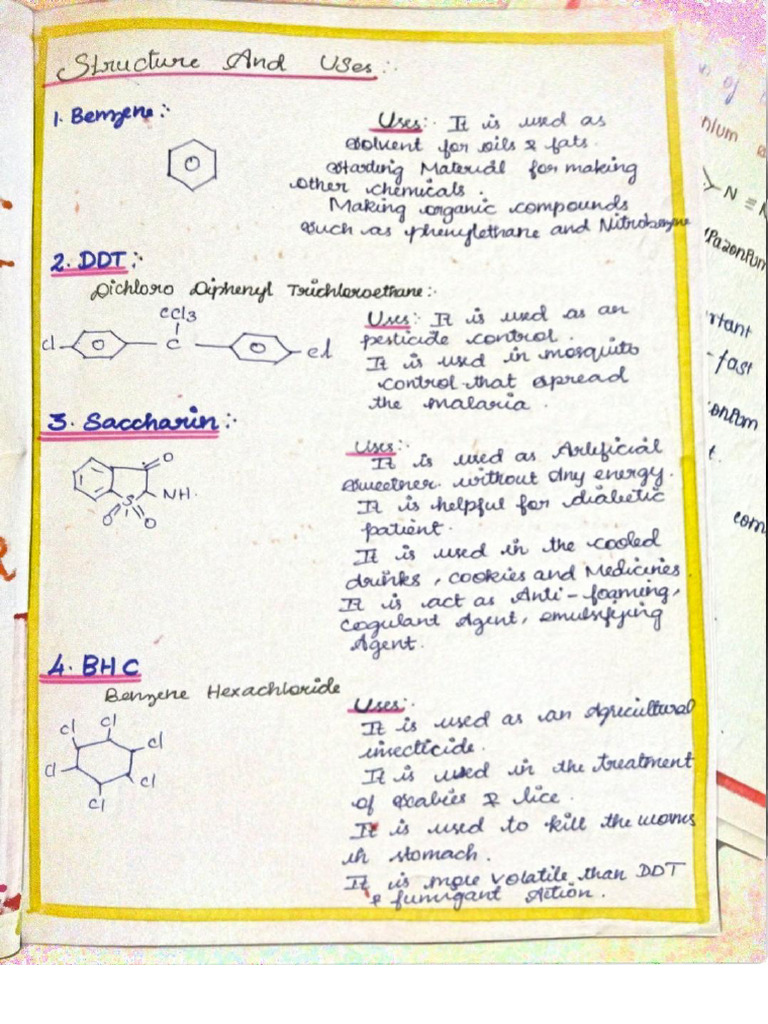 Structure And Uses:-
1. Benzene:-
Uses:- It is used as
Solvent for oils & fats.
Starting Material for making
other chemicals.
Making organic compounds
Such as phenylethane and Nitrobenzene
2. DDT:-
Dichloro Diphenyl Trichloroethane:-
CCl3
Cl
C
Cl
Uses:- It is used as an
pesticide control.
It is used in mosquito
control that spread
the malaria.
3. Saccharin:-
O
NH.
S
O
O
Uses:-
It is used as Arteficial
Sweetner without any energy.
It is helpful for diabetic
patient.
It is used in the cooled
drinks, cookies and Medicines
It is act as Anti-foaming,
cogulant Agent, emulsifying
Agent.
4. BHC
Benzene Hexachloride
Cl
Cl
Cl
Cl
Cl
Cl
Uses:-
It is used as an Agricultural
insecticide.
It is used in the treatment
of scabies & lice.
It is used to kill the worms
in stomach.
It is more volatile than DDT
& fumigant Action.
of
nium
N ≡ N
rtant
-fast
t.
com